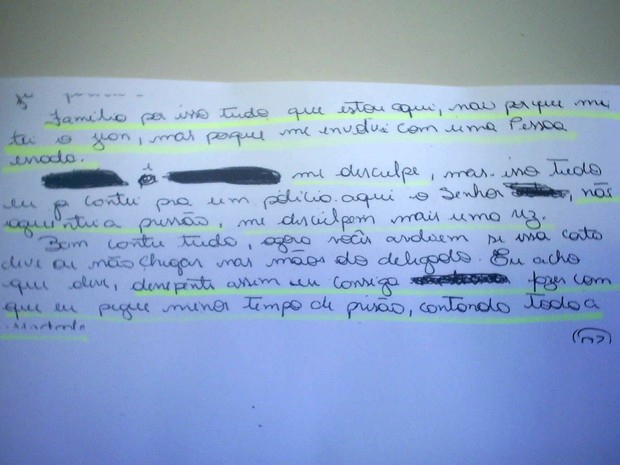 família por isso tudo que estou aqui, não porque ma
tei o yuon, mas porque me envolvi com uma Pessoa
errada.
e me desculpe, mas isso tudo
eu ja contei pra um policia aqui o Senhor, não
aguentei a pressão, me desculpem mais uma vez.
Bom contei tudo, agora vocês avaliem se essa carta
deve ou não chegar nas mãos do delegado. Eu acho
que deve, derepente assim eu consiga fazer com
que eu pegue menor tempo de prisão, contando toda a
verdade